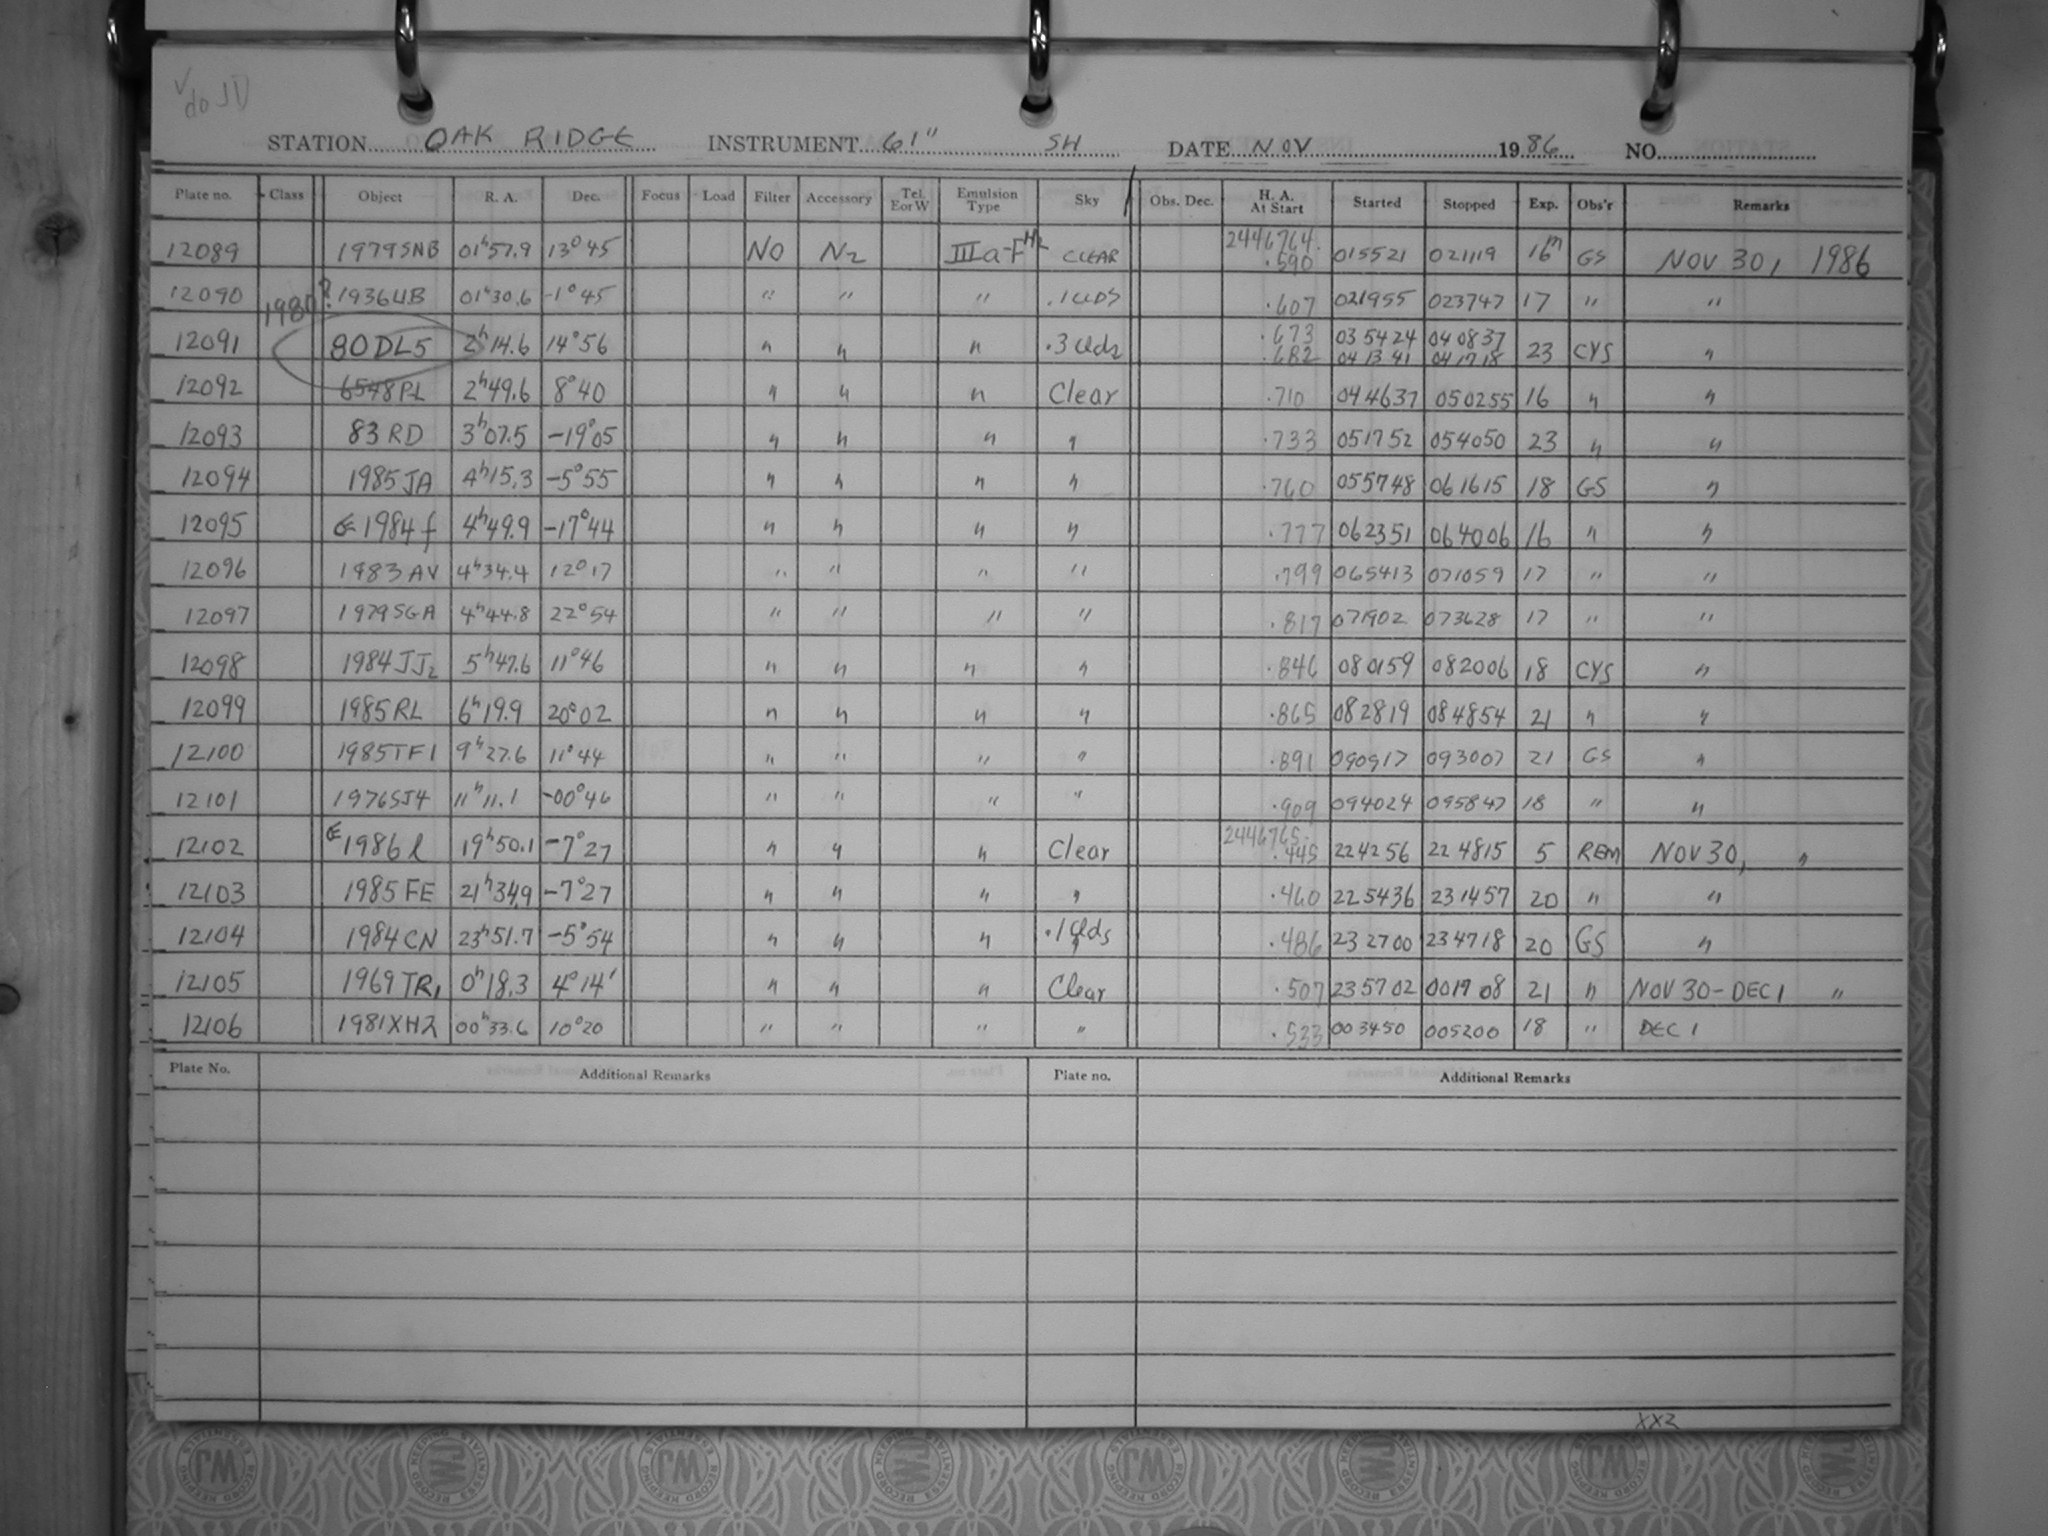 √ do JD
STATION OAK RIDGE INSTRUMENT 61" SH DATE NOV 1986 NO.
Plate no. Class Object R. A. Dec. Focus Load Filter Accessory Tel. E or W Emulsion Type Sky Obs. Dec. H. A. At Start Started Stopped Exp. Obs'r Remarks
12089 1979SNB 01h57.9 13°45 NO N2 IIIa-F CLEAR 2446764. .590 015521 021119 16m GS NOV 30, 1986
12090 ? 1936UB 01h30.6 -1°45 " " " .1CLDS .607 021955 023747 17 " "
1980
12091 80DL5 2h14.6 14°56 " " " .3 Clds .673 035424 040837 23 CYS "
.682 041341 041718
12092 6548PL 2h49.6 8°40 " " " Clear .710 044637 050255 16 " "
12093 83 RD 3h07.5 -19°05 " " " " .733 051752 054050 23 " "
12094 1985JA 4h15.3 -5°55 " " " " .760 055748 061615 18 GS "
12095 1984f 4h49.9 -17°44 " " " " .777 062351 064006 16 " "
12096 1983AV 4h34.4 12°17 " " " " .799 065413 071059 17 " "
12097 1979SGA 4h44.8 22°54 " " " " .817 071902 073628 17 " "
12098 1984JJ2 5h47.6 11°46 " " " " .846 080159 082006 18 CYS "
12099 1985RL 6h19.9 20°02 " " " " .865 082819 084854 21 " "
12100 1985TF1 9h27.6 11°44 " " " " .891 090917 093007 21 GS "
12101 1976SJ4 11h11.1 -00°46 " " " " .909 094024 095847 18 " "
12102 1986l 19h50.1 -7°27 " " " Clear 2446765. .445 224256 224815 5 REM NOV 30, "
12103 1985FE 21h34.9 -7°27 " " " " .460 225436 231457 20 " "
12104 1984CN 23h51.7 -5°54 " " " .1 Clds .486 232700 234718 20 GS "
12105 1969TR1 0h18.3 4°14' " " " Clear .507 235702 001908 21 " NOV 30-DEC 1 "
12106 1981XH2 00h33.6 10°20 " " " " .533 003450 005200 18 " DEC 1
Plate No. Additional Remarks Plate no. Additional Remarks
XX2